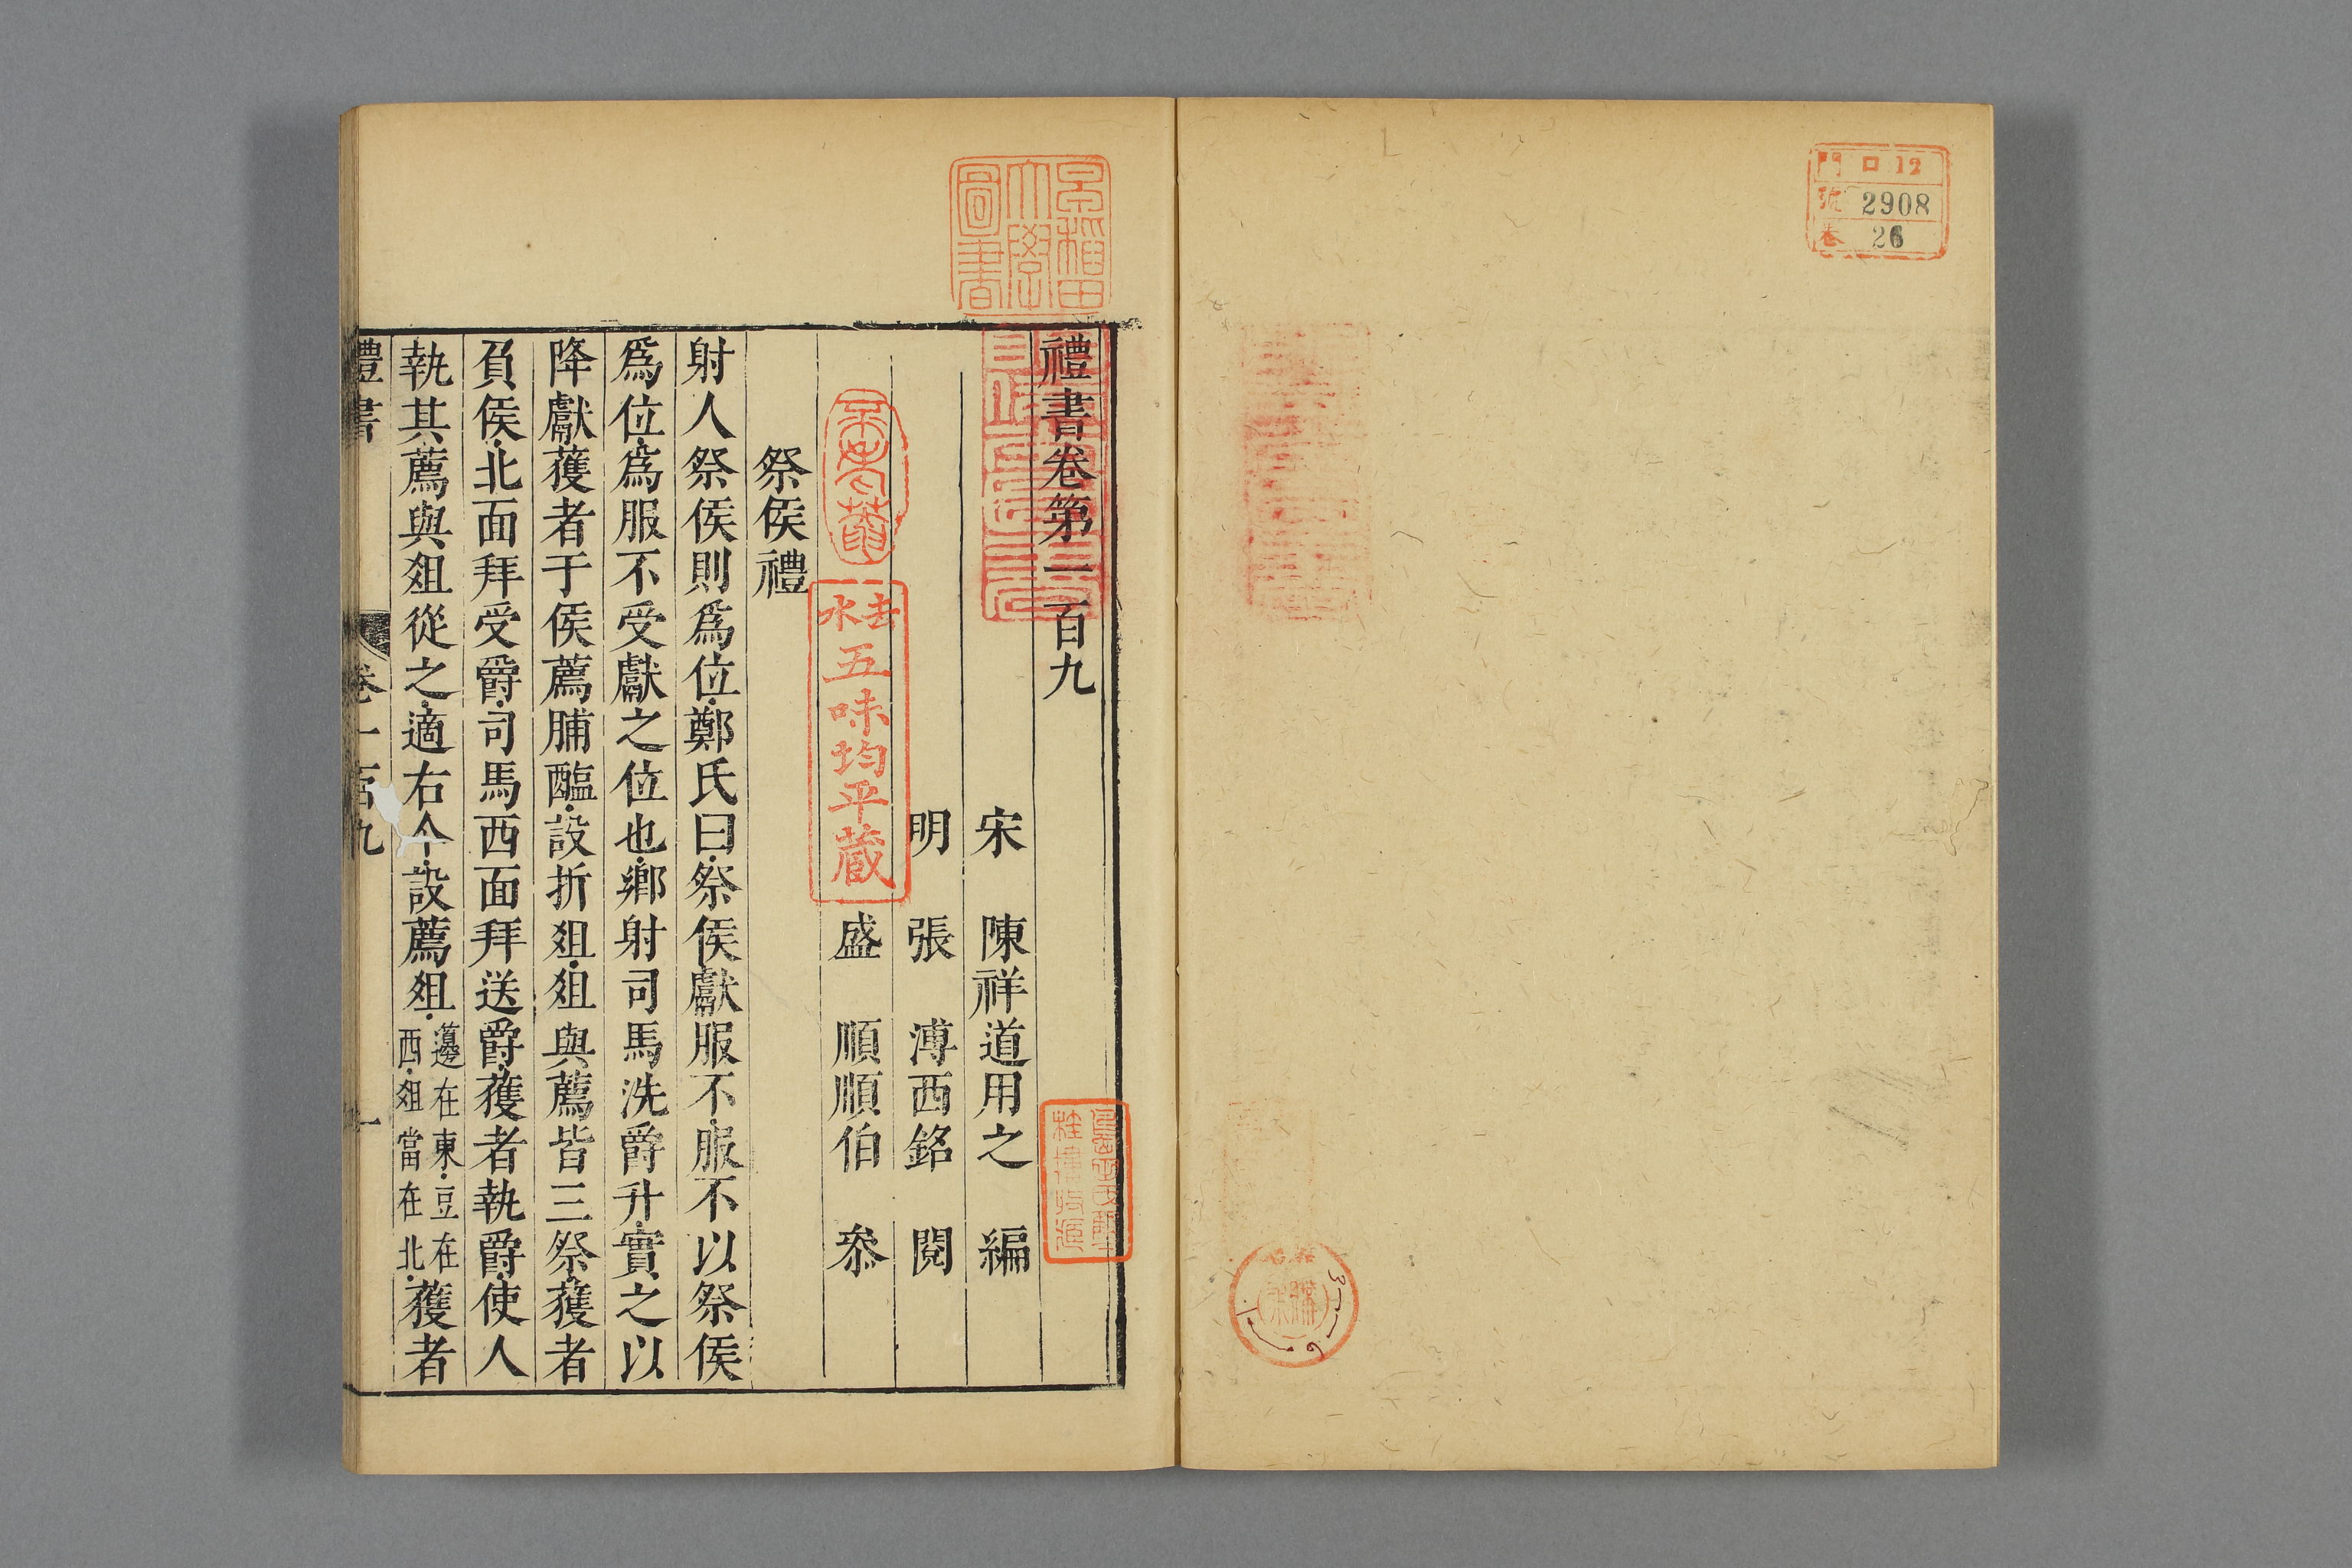 門 ロ 12
號 2908
卷 26
早稲田大學圖書
禮書卷第一百九
宋 陳祥道用之 編
明 張溥西銘 閱
盛順順伯 叅
去水
五味均平蔵
祭侯禮
射人祭侯則爲位鄭氏曰祭侯獻服不服不以祭侯
爲位爲服不受獻之位也鄕射司馬洗爵升實之以
降獻獲者于侯薦脯醢設折俎俎與薦皆三祭獲者
負侯北面拜受爵司馬西面拜送爵獲者執爵使人
執其薦與俎從之適右个設薦俎籩在東豆在西俎當在北獲者
禮書 卷一百九 一